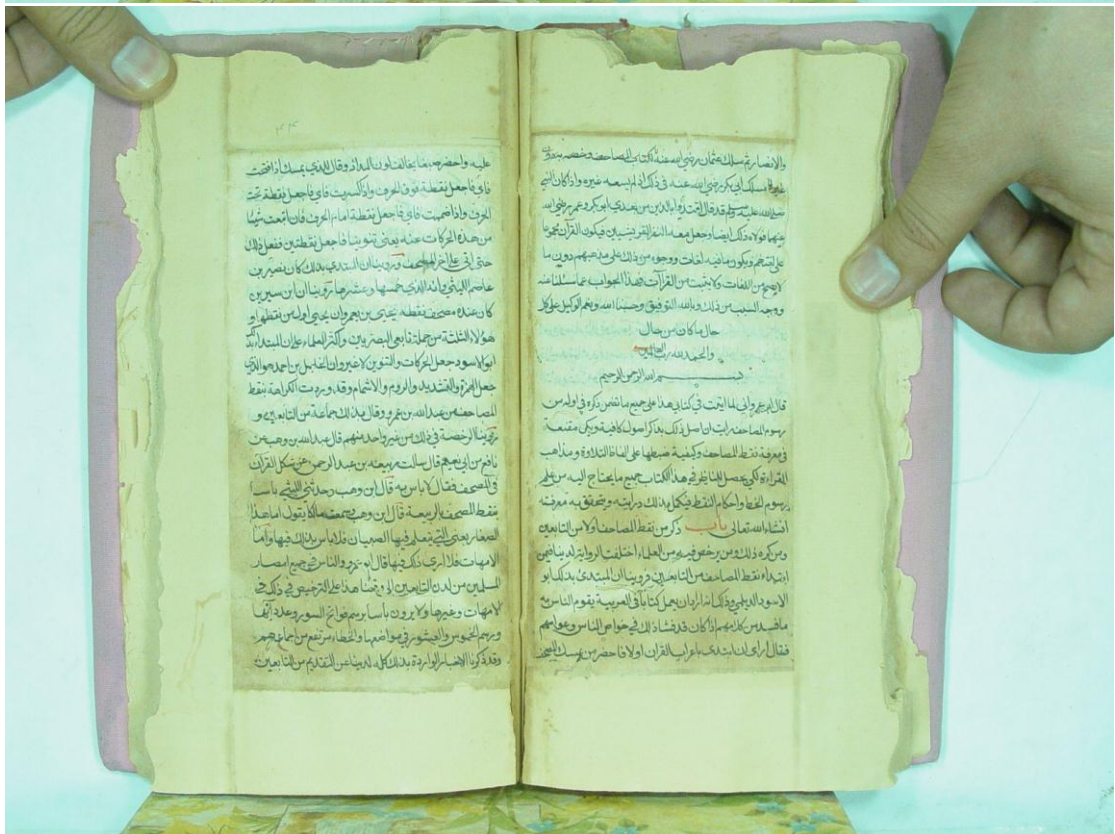 والانصار ثم سلك عثمان رضي الله عنه لكتاب المصاحف وخصه بتدوين
غيره مسلك ابي بكر رضي الله عنه في ذلك اذ لم يسعه غيره واذا كان النبي
صلى الله عليه وسلم قد قال اقتدوا بالذين من بعدي ابو بكر وعمر رضي الله
عنهما فولاه ذلك ايضا وجعل معه النفر القرشيين فيكون القرآن مجموعا
على لغتهم ويكون ما فيه لغات ووجوه من ذلك على مذهبهم دون ما
لا يصح من اللغات ولا يثبت من القراآت فهذا الجواب عما سئلنا عنه
ووجه السبب من ذلك وبالله التوفيق وحسبنا الله ونعم الوكيل على كل
حال ما كان من حال
والحمد لله رب العالمين
بسم الله الرحمن الرحيم
قال ابو عمرو اني لما اتيت في كتابي هذا على جميع ما تضمن ذكره في اوله من
رسوم المصاحف رايت ان اصل ذلك بذكر اصول كافية ونكت مقنعة
في معرفة نقط المصاحف وكيفية ضبطها على الفاظ التلاوة ومذاهب
القراءة لكي يحصل للناظر في هذا الكتاب جميع ما يحتاج اليه من علم
رسوم الخط واحكام النقط فيكمل بذلك درايته ويتحقق به معرفته
انشاء الله تعالى باب ذكر من نقط المصاحف اولا من التابعين
ومن كره ذلك ومن يرخص فيه من العلماء اختلفت الرواية لدينا فيمن
ابتداء نقط المصاحف من التابعين فروينا ان المبتدئ بذلك ابو
الاسود الديلمي وذلك انه اراد ان يعمل كتابا في العربية يقوم الناس به
ما فسد من كلامهم اذ كان قد فشا ذلك في خواص الناس وعوامهم
فقال ارى ان ابتدى باعراب القرآن اولا فاحضر من يمسك المصحف
عليه واحضر صبغا يخالف لون المداد وقال للذي يمسك اذا فتحت
فاي فاجعل نقطة فوق الحرف واذا كسرت فاي فاجعل نقطة تحت
الحرف واذا ضممت فاي فاجعل نقطة امام الحرف فان اتبعت شيئا
من هذه الحركات غنه يعني تنوينا فاجعل نقطتين ففعل ذلك
حتى اتى على اخر المصحف وروينا ان المبتدي بذلك كان نصر بن
عاصم الليثي وانه الذي خمسها وعشرها روينا ان ابن سيرين
كان عنده مصحف نقطه يحيى بن يعمر وان يحيى اول من نقطها و
هؤلاء الثلثة من جملة تابعي البصريين واكثر العلماء على ان المبتداء بذلك
ابو الاسود جعل الحركات والتنوين لا غير وان الخليل بن احمد هو الذي
جعل الهمزة والتشديد والروم والاشمام وقد وردت الكراهة بنقط
المصاحف من عبد الله بن عمر وقال بذلك جماعة من التابعين و
روينا الرخصة في ذلك من غير واحد منهم قال عبد الله بن وهب عن
نافع بن ابي نعيم قال سالت ربيعة بن عبد الرحمن عن شكل القرآن
في المصحف فقال لا باس به قال ابن وهب وحدثني الليث باسا
فنقط المصحف بالربيعة قال ابن وهب وسمعت مالكا يقول اما هذا
الصغار يعني التي يتعلم فيها الصبيان فلا باس بذلك فيها واما
الامهات فلا ارى ذلك فيها قال ابو عمرو والناس في جميع امصار
المسلمين من لدن التابعين الى وقتنا هذا على الترخيص في ذلك في
الامهات وغيرها ولا يرون باسا برسم فواتح السور وعدد آيها
ورسم الخموس والعشور في مواضعها والخطاء مرتفع من اجماعهم
وقد ذكرنا الاخبار الواردة بذلك كله لدينا عن المتقدمين من التابعين